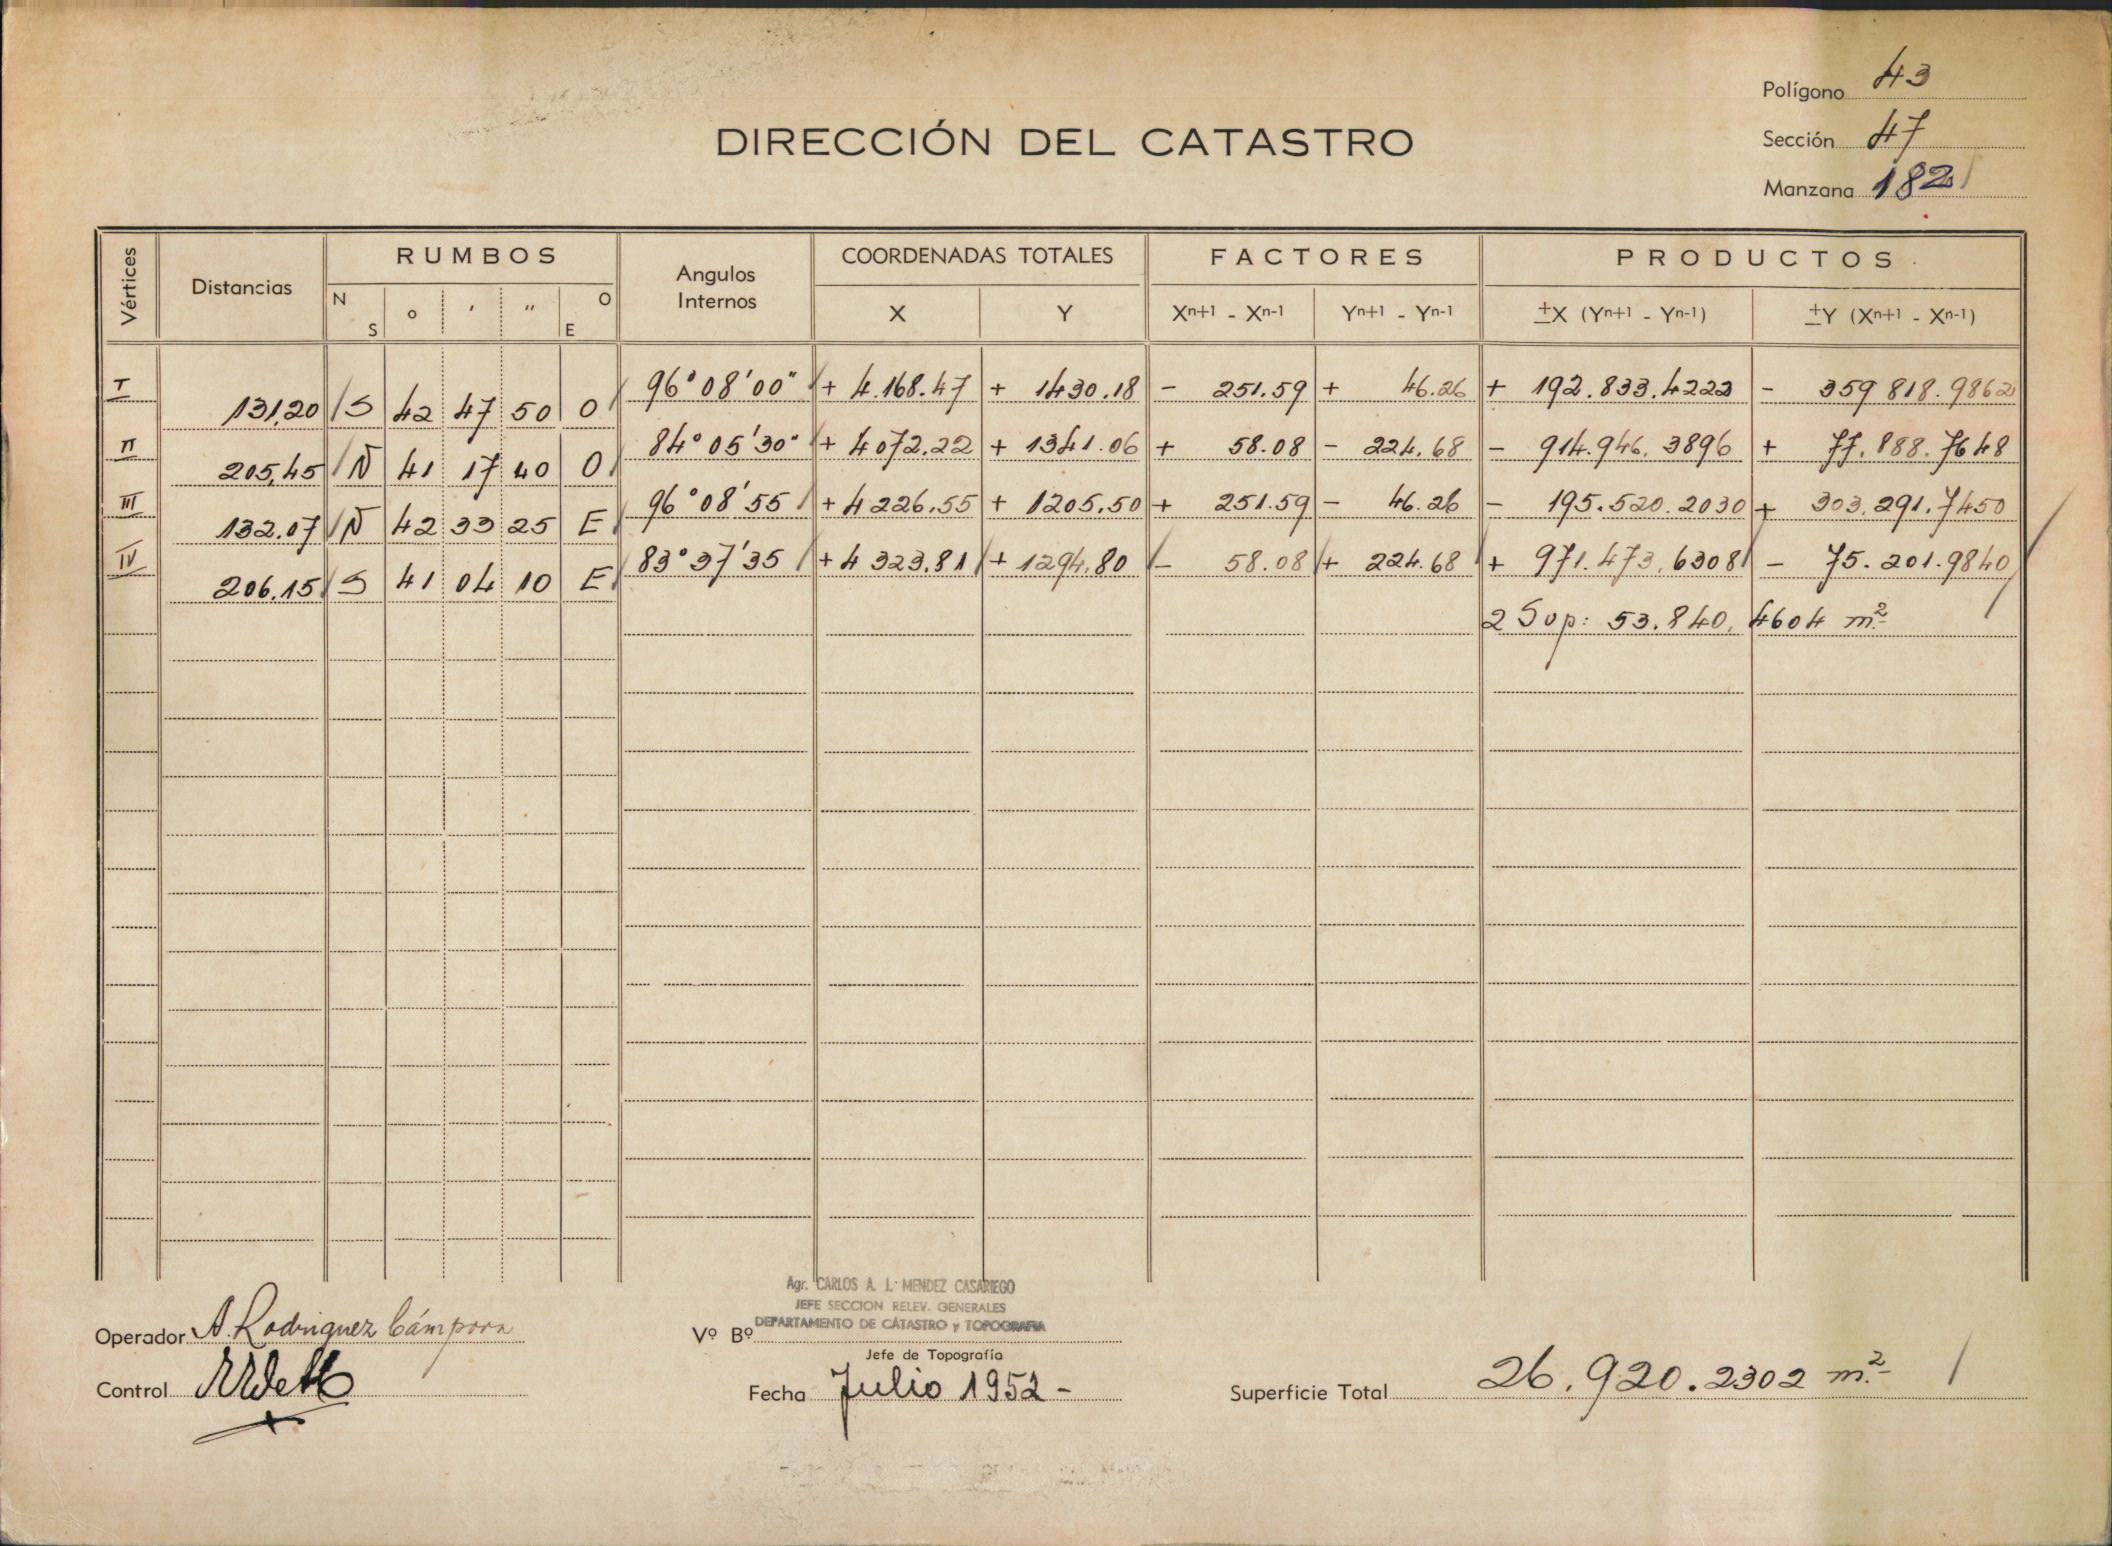 Polígono 43
DIRECCIÓN DEL CATASTRO
Sección 47
Manzana 182
Vértices Distancias RUMBOS Angulos Internos COORDENADAS TOTALES FACTORES PRODUCTOS
N S o ' " O E X Y Xn+1 - Xn-1 Yn+1 - Yn-1 ±X (Yn+1 - Yn-1) ±Y (Xn+1 - Xn-1)
I 131,20 S 42 47 50 O 96° 08' 00" + 4.168.47 + 1430.18 - 251.59 + 46.26 + 192.833.4222 - 359 818.9862
II 205,45 N 41 17 40 O 84° 05' 30" + 4072,22 + 1341.06 + 58.08 - 224.68 - 914.946.3896 + 77.888.7648
III 132.07 N 42 33 25 E 96° 08' 55 + 4226.55 + 1205.50 + 251.59 - 46.26 - 195.520.2030 + 303.291.7450
IV 206.15 S 41 04 10 E 83° 37' 35 + 4323.81 + 1294.80 - 58.08 + 224.68 + 971.473.6308 - 75.201.9840
2 Sup: 53.840,4604 m²
Agr. CARLOS A. L. MENDEZ CASARIEGO
JEFE SECCION RELEV. GENERALES
DEPARTAMENTO DE CATASTRO y TOPOGRAFIA
Operador A. Rodriguez Cámpora
Vº Bº
Jefe de Topografía
Control
Fecha Julio 1952 -
Superficie Total 26.920.2302 m²